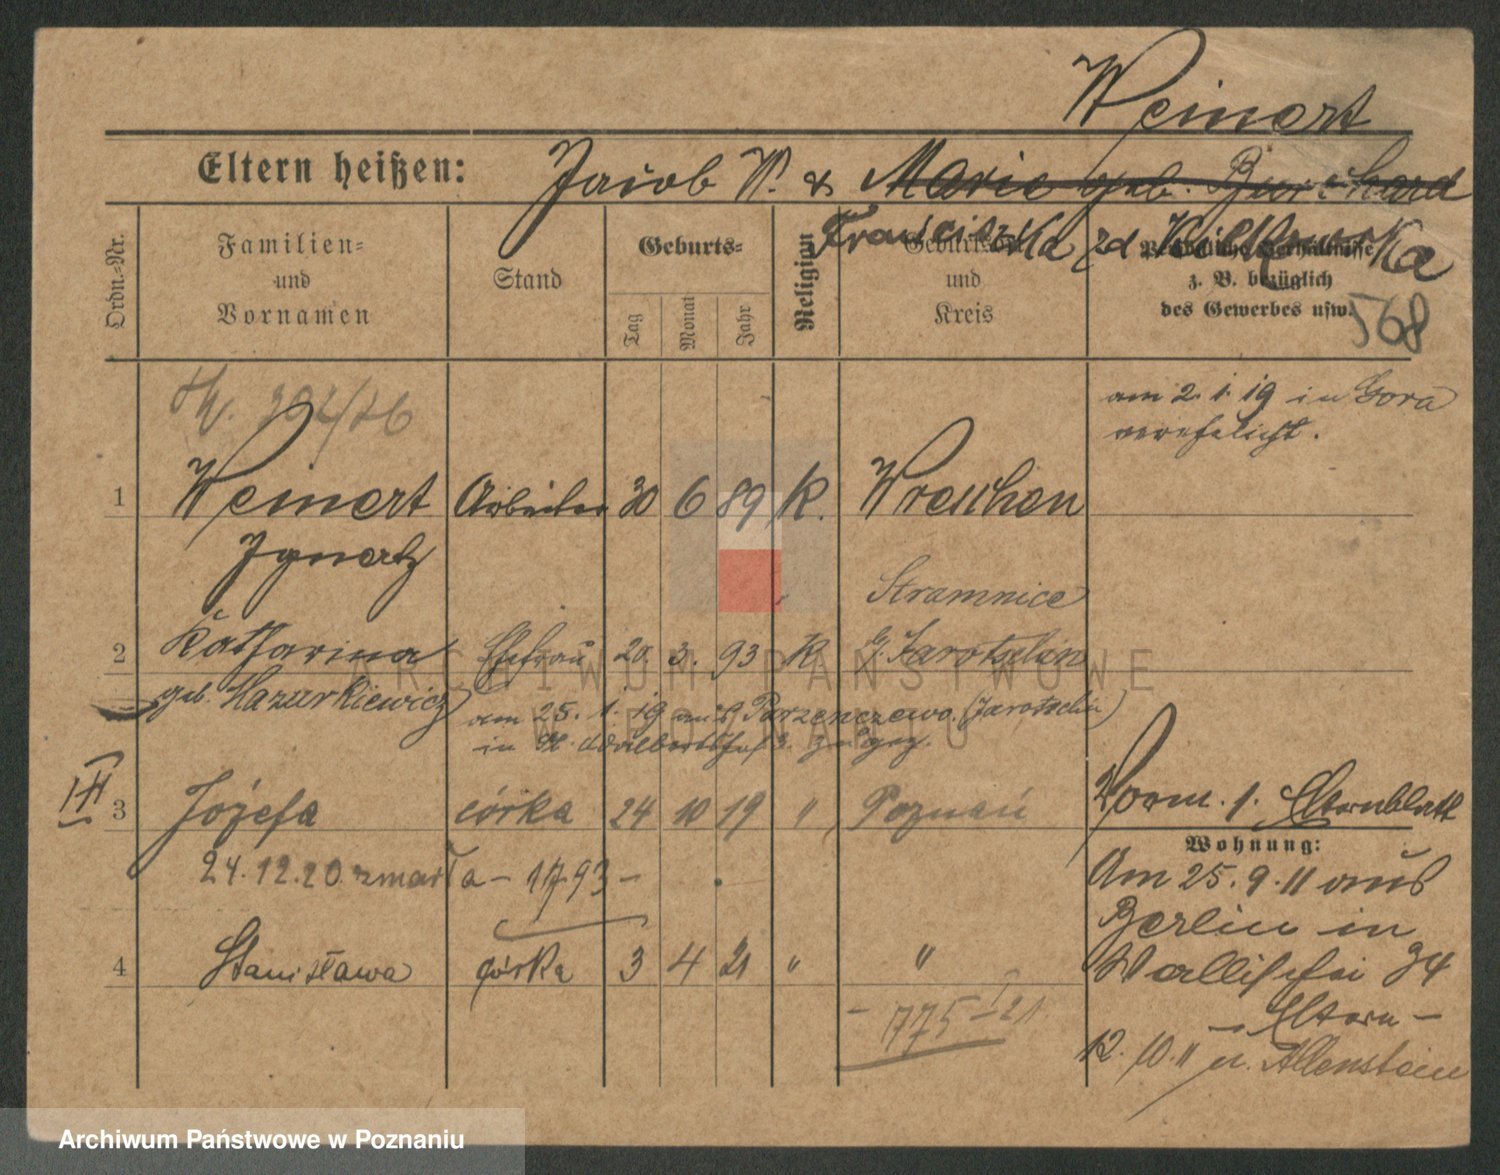 Weinert
Eltern heißen: Jacob W. & Marie geb. Burchard
Franciszka zd
Ordn.-Nr.
Familien- und Vornamen
Stand
Geburts-
Tag
Monat
Jahr
Religion
Geburtsort und Kreis
Persönliche Verhältnisse
z. B. bezüglich
des Gewerbes usw.
568
am 2. 1. 19 in Gora
verehelicht.
1 Weinert Arbeiter 30 6 89 K. Wreschen
Ignatz
Stramnice
2 Katharina Ehefrau 20. 3. 93 K K. Jarotschin
geb. Hazurkiewicz
am 25. 1. 19 aus Parzenczewo. (Jarotschin)
in St. Adalbertstr. 3. zugez.
III
3 Józefa córka 24 10 19 " Poznań
24.12.20. zmarła - 1793 -
4 Stanisława córka 3 4 21 " "
- 775 - 21
Vorm. 1. Elternblatt
Wohnung:
Am 25. 9. 11 aus
Berlin in
Wallischei 34
- Eltern -
12. 10. 11 n. Allenstein
ARCHIWUM PAŃSTWOWE
W POZNANIU
Archiwum Państwowe w Poznaniu